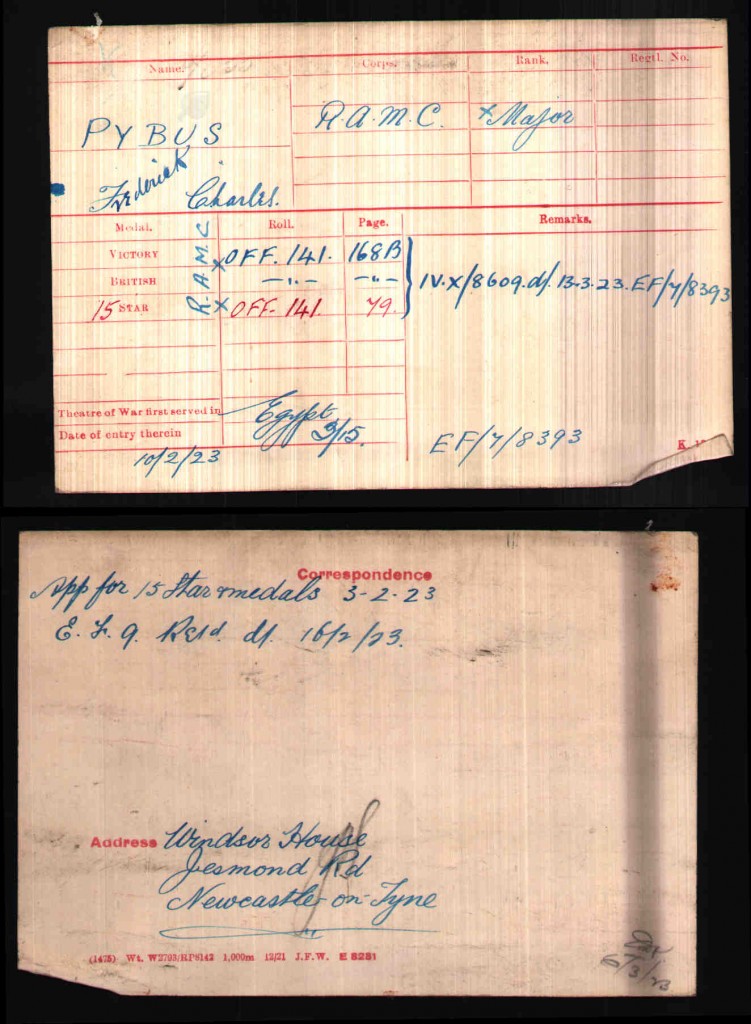 Name. Corps. Rank. Regtl. No.
PYBUS R.A.M.C. x Major
Frederick Charles.
Medal. Roll. Page. Remarks.
R.A.M.C
VICTORY x OFF. 141. 168B
BRITISH —"— —"— IV.X/8609.d/. 13.3.23. EF/7/8393
15 STAR x OFF. 141. 79.
Theatre of War first served in Egypt
Date of entry therein 3/15.
10/2/23 EF/7/8393
Correspondence
App for 15 Star & medals 3-2-23
E. F. 9. Retd. d/. 16/2/23.
Address Windsor House
Jesmond Rd
Newcastle-on-Tyne
(1475) Wt. W2703/RP8142 1,000m 12/21 J.F.W. E 8251
6/3/23